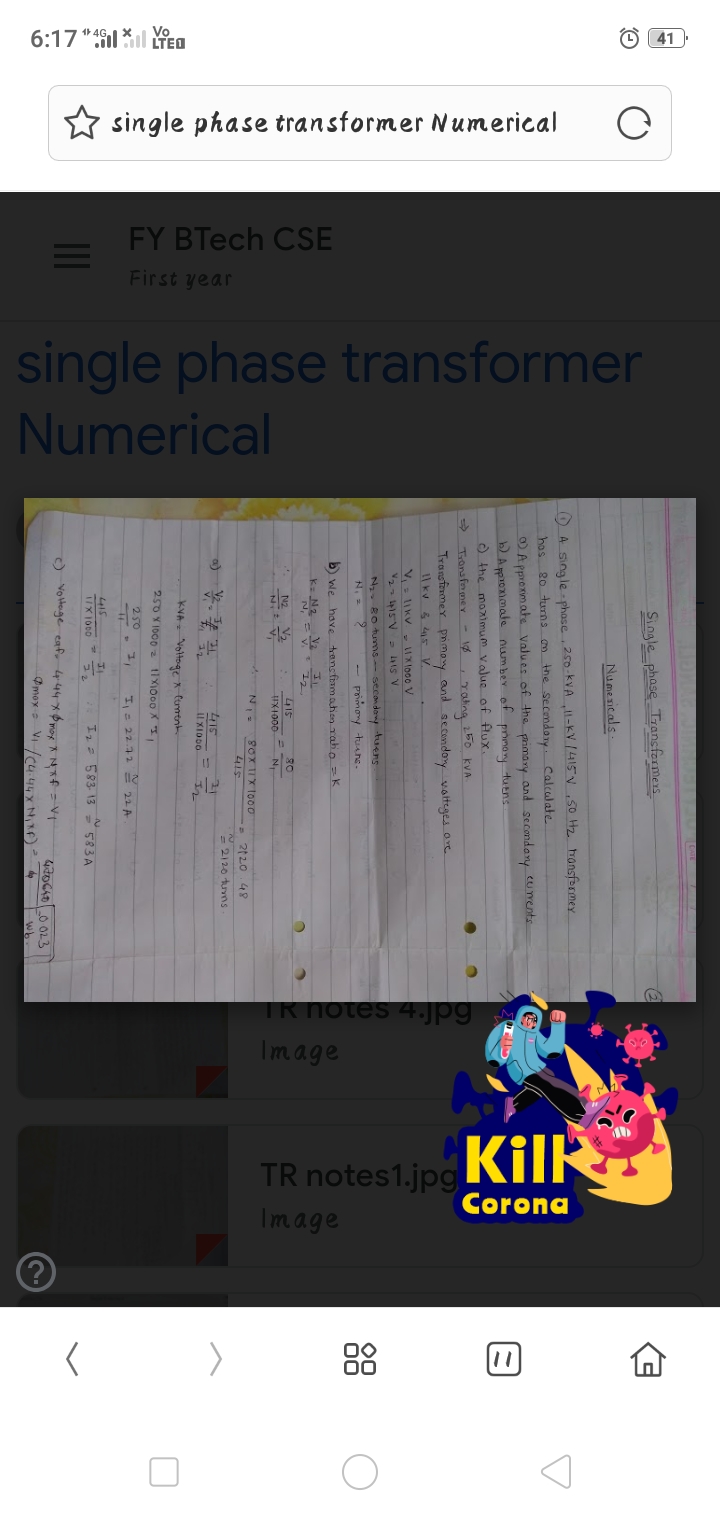 6:17 4G Vo LTE 41
single phase transformer Numerical
FY BTech CSE
First year
single phase transformer
Numerical
Single phase Transformers
Numericals:
① A single-phase, 250-kVA, 11-kV/415V, 50 Hz transformer
has 80 turns on the secondary. Calculate
a) Approximate values of the primary and secondary currents
b) Approximate number of primary turns
c) the maximum value of flux.
⇒ Transformer - 1ϕ, rating 250 kVA
Transformer primary and secondary voltages are
11 kV & 415 V.
V₁ = 11kV = 11×1000 V
V₂ = 415V = 415 V
N₂ = 80 turns - secondary turns
N₁ = ? - primary turns.
b) We have transformation ratio = K
K = N₂/N₁ = V₂/V₁ = I₁/I₂
∴ N₂/N₁ = V₂/V₁ ∴ 415/11×1000 = 80/N₁
∴ N₁ = 80×11×1000/415 = 2120.48
≈ 2120 turns
a) V₂/V₁ = I₁/I₂ 415/11×1000 = I₁/I₂
kVA = Voltage × current
250×1000 = 11×1000 × I₁
250/11 = I₁ I₁ = 22.72 ≅ 22A
415/11×1000 = I₁/I₂ ∴ I₂ = 583.13 ≈ 583A
c) Voltage eqn = 4.44 × ϕmax × N₁×f = V₁
ϕmax = V₁/(4.44×N₁×f) = 0.023
wb.
TR notes 4.jpg
Image
TR notes1.jpg
Image
Kill
Corona
?
11